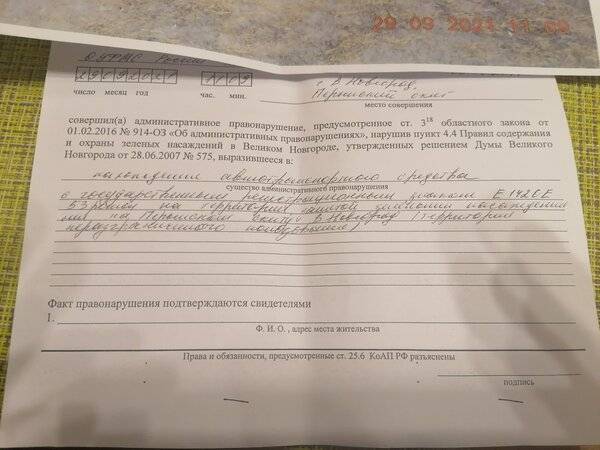 29 09 2021 11:09
ОУФМС России
29092021 1109
г. В. Новгород,
число месяц год час. мин.
Перынский скит
место совершения
совершил(а) административное правонарушение, предусмотренное ст. 3¹⁸ областного закона от
01.02.2016 № 914-ОЗ «Об административных правонарушениях», нарушив пункт 4.4 Правил содержания
и охраны зеленых насаждений в Великом Новгороде, утвержденных решением Думы Великого
Новгорода от 28.06.2007 № 575, выразившееся в:
нахождение автотранспортного средства
существо административного правонарушения
с государственным регистрационным знаком Е142ЕЕ
53 регион на территории занятой зелёными насаждения
ми, на Перынском скиту г. В. Новгород (территория
неразграниченного пользования)
Факт правонарушения подтверждаются свидетелями
1.
Ф. И. О. , адрес места жительства
Права и обязанности, предусмотренные ст. 25.6 КоАП РФ разъяснены
подпись